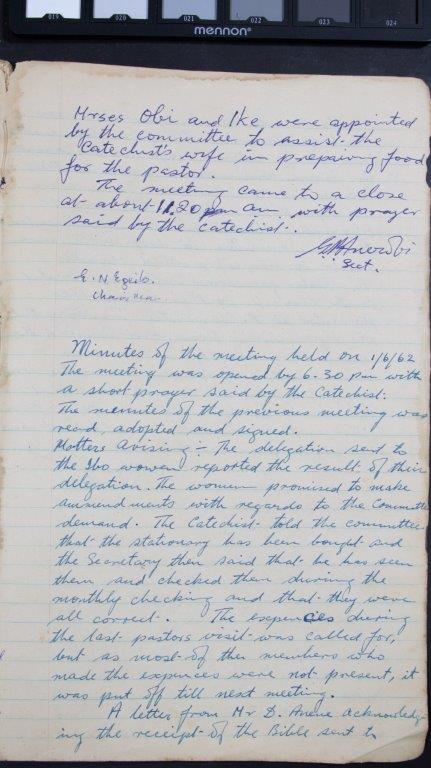 019 020 021 022 023 024
mennon
Mrses Obi and Ike were appointed
by the committee to assist the
Catechist's wife in prepairing food
for the pastor.
The meeting came to a close
at about 11.20 pm am, with prayer
said by the catechist.
Sect.
E. N.
Chairman
Minutes of the meeting held on 1/6/62
The meeting was opened by 6.30 pm with
a short prayer said by the Catechist.
The menutes of the previous meeting was
read, adopted and signed.
Matters arising :- The delegation sent to
the Ibo women reported the result of their
delegation. The women promised to make
ammendments with regards to the Committee
demand. The Catechist told the committee
that the stationary has been bought and
the Secretary then said that he has seen
them and checked them during the
monthly checking and that they were
all correct. The expences during
the last pastors visit was called for,
but as most of the members who
made the expences were not present, it
was put off till next meeting.
A letter from Mr D. Anene acknowledg-
ing the receipt of the Bible sent to